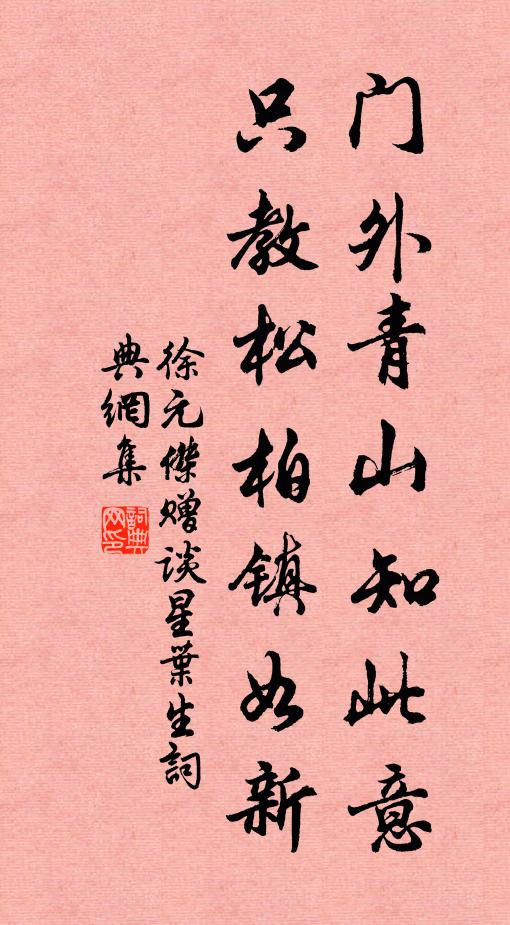 门外青山知此意
只教松柏镇如新
徐元傑赠谈星葉生詞
典網集
詞典
网印